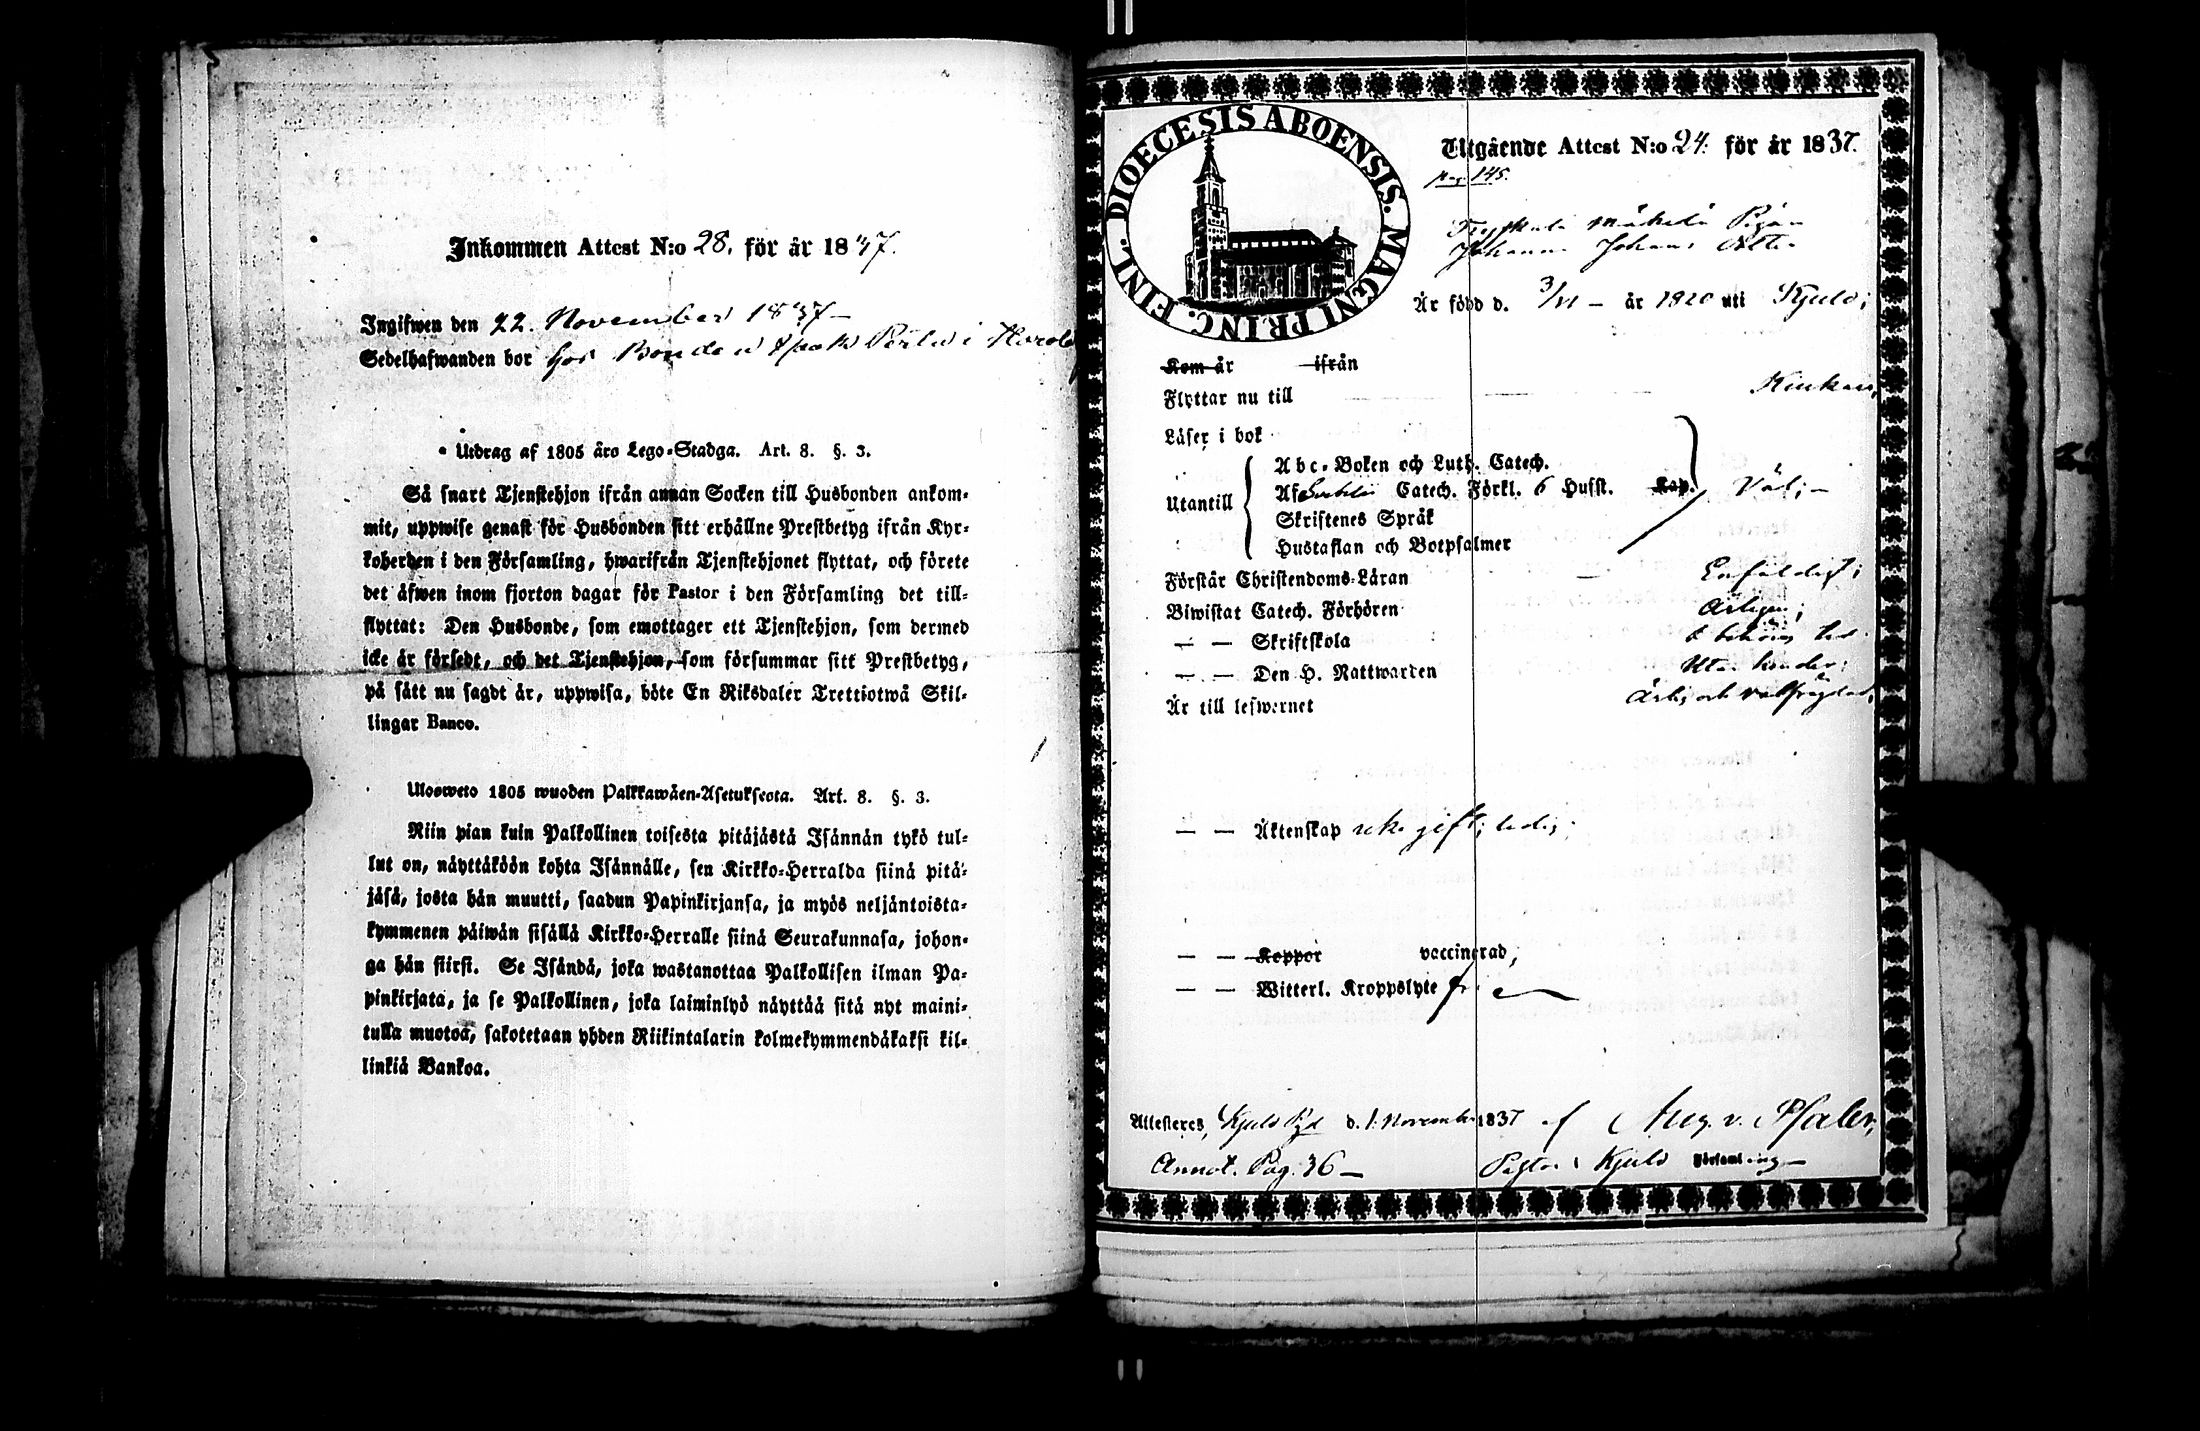 Inkommen Attest N:o 28. för år 1837.
Ingifwen den 22. November 1837
Sedelhafwanden bor hos Bonden i
Utdrag af 1805 års Lego-Stadga. Art. 8. §. 3.
Så snart Tjenstehjon ifrån annan Socken till Husbonden ankom-
mit, uppwise genast för Husbonden sitt erhållne Prestbetyg ifrån Kyr-
koherden i den Församling, hwarifrån Tjenstehjonet flyttat, och förete
det äfwen inom fjorton dagar för Pastor i den Församling det till-
flyttat: Den Husbonde, som emottager ett Tjenstehjon, som dermed
icke är försedt, och det Tjenstehjon, som försummar sitt Prestbetyg,
på sätt nu sagdt är, uppwisa, böte En Riksdaler Trettiotwå Skil-
lingar Banco.
Ulosweto 1805 wuoden Palkkawäen-Asetuksesta. Art. 8. §. 3.
Niin pian kuin Palkollinen toisesta pitäjästä Isännän tykö tul-
lut on, näyttäköön kohta Isännälle, sen Kirkko-Herralda siinä pitä-
jäsä, josta hän muutti, saadun Papinkirjansa, ja myös neljäntoista-
kymmenen päiwän sisällä Kirkko-Herralle siinä Seurakunnasa, johon-
ga hän siirsi. Se Isändä, joka wastanottaa Palkollisen ilman Pa-
pinkirjata, ja se Palkollinen, joka laiminlyö näyttää sitä nyt maini-
tulla muotoa, sakotetaan yhden Riikintalarin kolmekymmendäkaksi kil-
linkiä Bankoa.
FINL. DIOECESIS ABOENSIS. MAGNI PRINC.
Utgående Attest N:o 24. för år 1837.
pag. 145.
Mäkelä Pigan
Johanna Johans dotter
Är född d. 3/VI år 1820 uti Kjulo;
Kom år ifrån
Flyttar nu till
Läser i bok
Utantill
Abc-Boken och Luth. Catech.
Af Catech. Förkl. 6 Hufst. Kap.
Skriftenes Språk
Hustaflan och Botpsalmer
Väl;
Förstår Christendoms-Läran Enfaldigt;
Biwistat Catech. Förhören Årligen;
— — Skriftskola å behörig tid.
— — Den H. Nattwarden Utan hinder;
Är till lefwernet Ärlig och välfrägdad;
— — Äktenskap icke gift; ledig;
— — Koppor vaccinerad,
— — Witterl. Kroppslyte fri
Attesteres, Kjulo d. 1 November 1837 af Aug. v. Pfaler,
Annot. Pag. 36 Pastor i Kjulo Församling